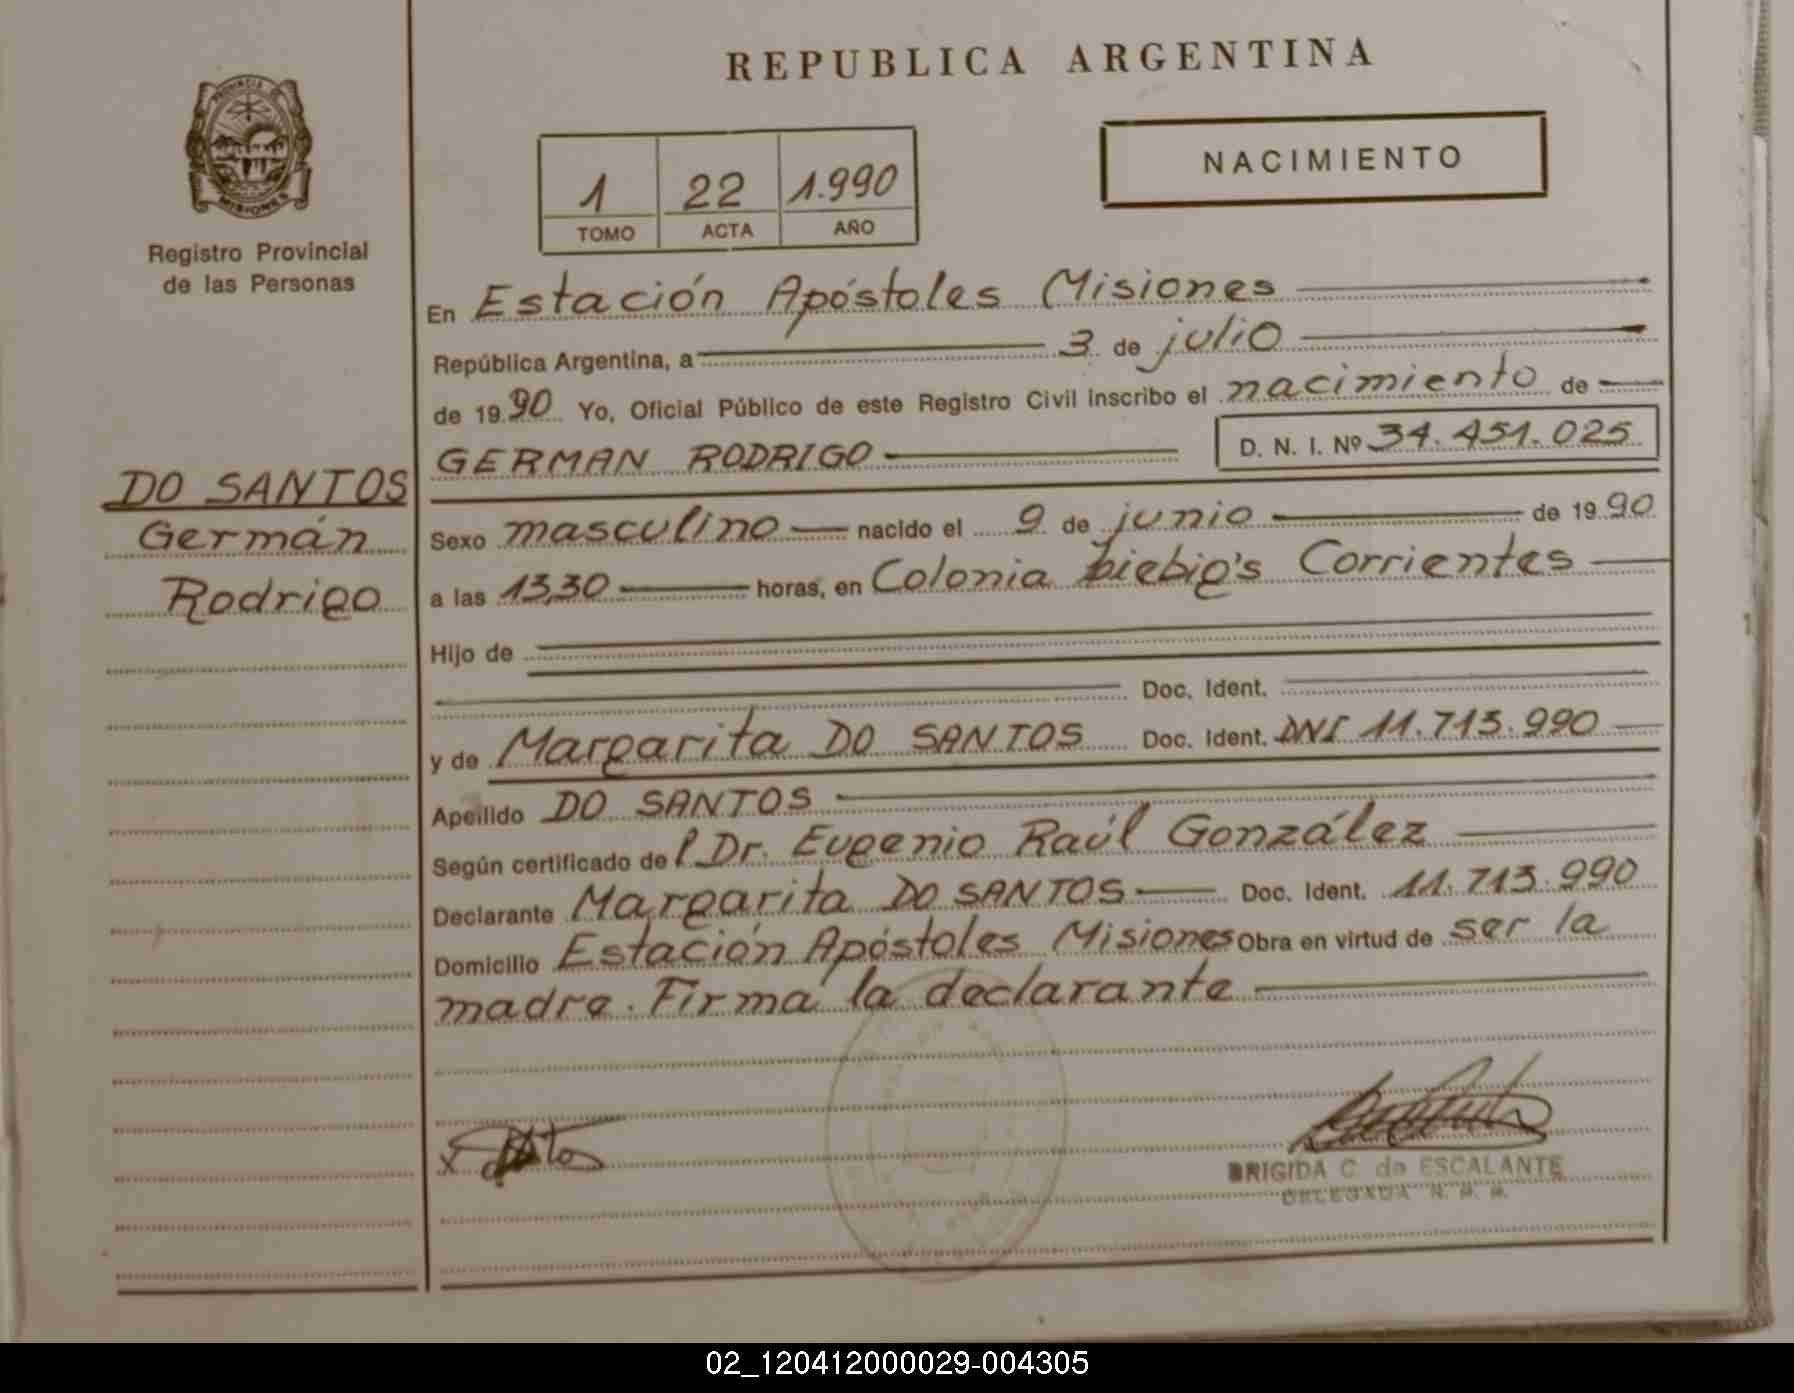 REPUBLICA ARGENTINA
PROVINCIA DE
MISIONES
Registro Provincial
de las Personas
1 22 1.990
TOMO ACTA AÑO
NACIMIENTO
En Estación Apóstoles Misiones
República Argentina, a 3 de julio
de 1990 Yo, Oficial Público de este Registro Civil inscribo el nacimiento de
GERMAN RODRIGO D. N. I. Nº 34.451.025
DO SANTOS
Germán
Rodrigo
Sexo masculino nacido el 9 de junio de 1990
a las 13,30 horas, en Colonia Corrientes
Hijo de
Doc. Ident.
y de Margarita DO SANTOS Doc. Ident. DNI 11.713.990
Apellido DO SANTOS
Según certificado de l Dr. Eugenio Raúl González
Declarante Margarita DO SANTOS Doc. Ident. 11.713.990
Domicilio Estación Apóstoles Misiones Obra en virtud de ser la
madre. Firma la declarante
BRIGIDA C. de ESCALANTE
DELEGADA
02_120412000029-004305